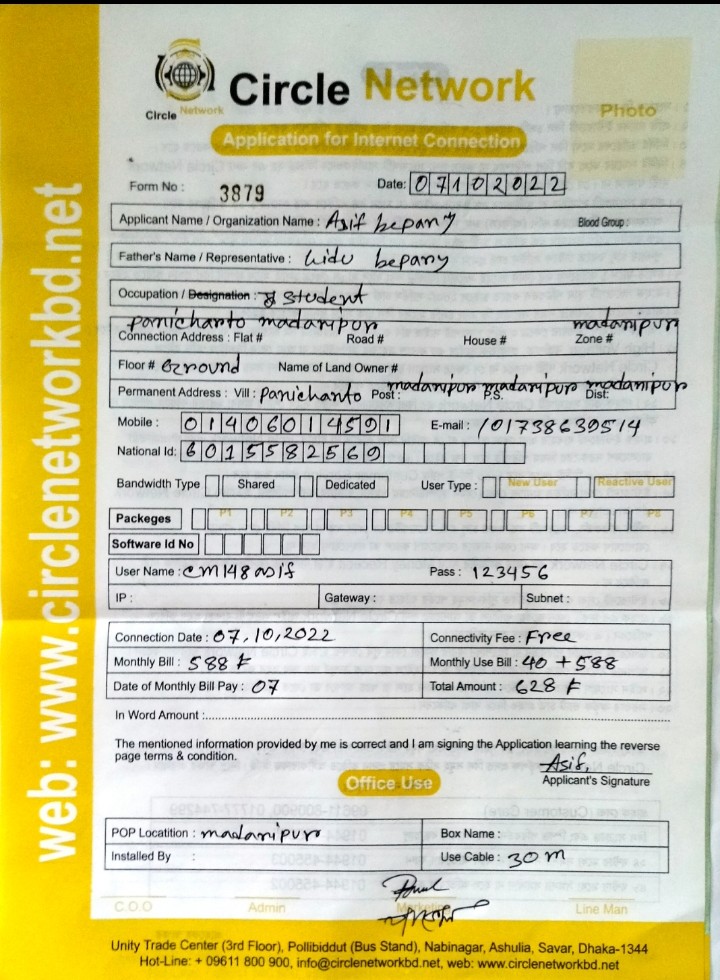 Circle Network
Circle Network
Photo
Application for Internet Connection
Form No : 3879 Date: 07102022
Applicant Name / Organization Name : Asif bepary Blood Group :
Father's Name / Representative : Lidu bepary
Occupation / Designation : Student
panichanto madaripur madaripur
Connection Address : Flat # Road # House # Zone #
Floor # Ground Name of Land Owner #
Permanent Address : Vill : panichanto Post : madaripur P.S. madaripur Dist: madaripur
Mobile : 01406014591 E-mail : /01738639514
National Id: 6015582569
Bandwidth Type Shared Dedicated User Type : New User Reactive User
Packeges P1 P2 P3 P4 P5 P6 P7 P8
Software Id No
User Name : cm148asif Pass : 123456
IP : Gateway : Subnet :
Connection Date : 07,10,2022 Connectivity Fee : Free
Monthly Bill : 588 ৳ Monthly Use Bill : 40 + 588
Date of Monthly Bill Pay : 07 Total Amount : 628 ৳
In Word Amount :
The mentioned information provided by me is correct and I am signing the Application learning the reverse
page terms & condition.
Asif,
Applicant's Signature
Office Use
POP Locatition : madaripur Box Name :
Installed By : Use Cable : 30 m
C.O.O Admin Marketing Line Man
Unity Trade Center (3rd Floor), Pollibiddut (Bus Stand), Nabinagar, Ashulia, Savar, Dhaka-1344
Hot-Line: + 09611 800 900, info@circlenetworkbd.net, web: www.circlenetworkbd.net
web: www.circlenetworkbd.net